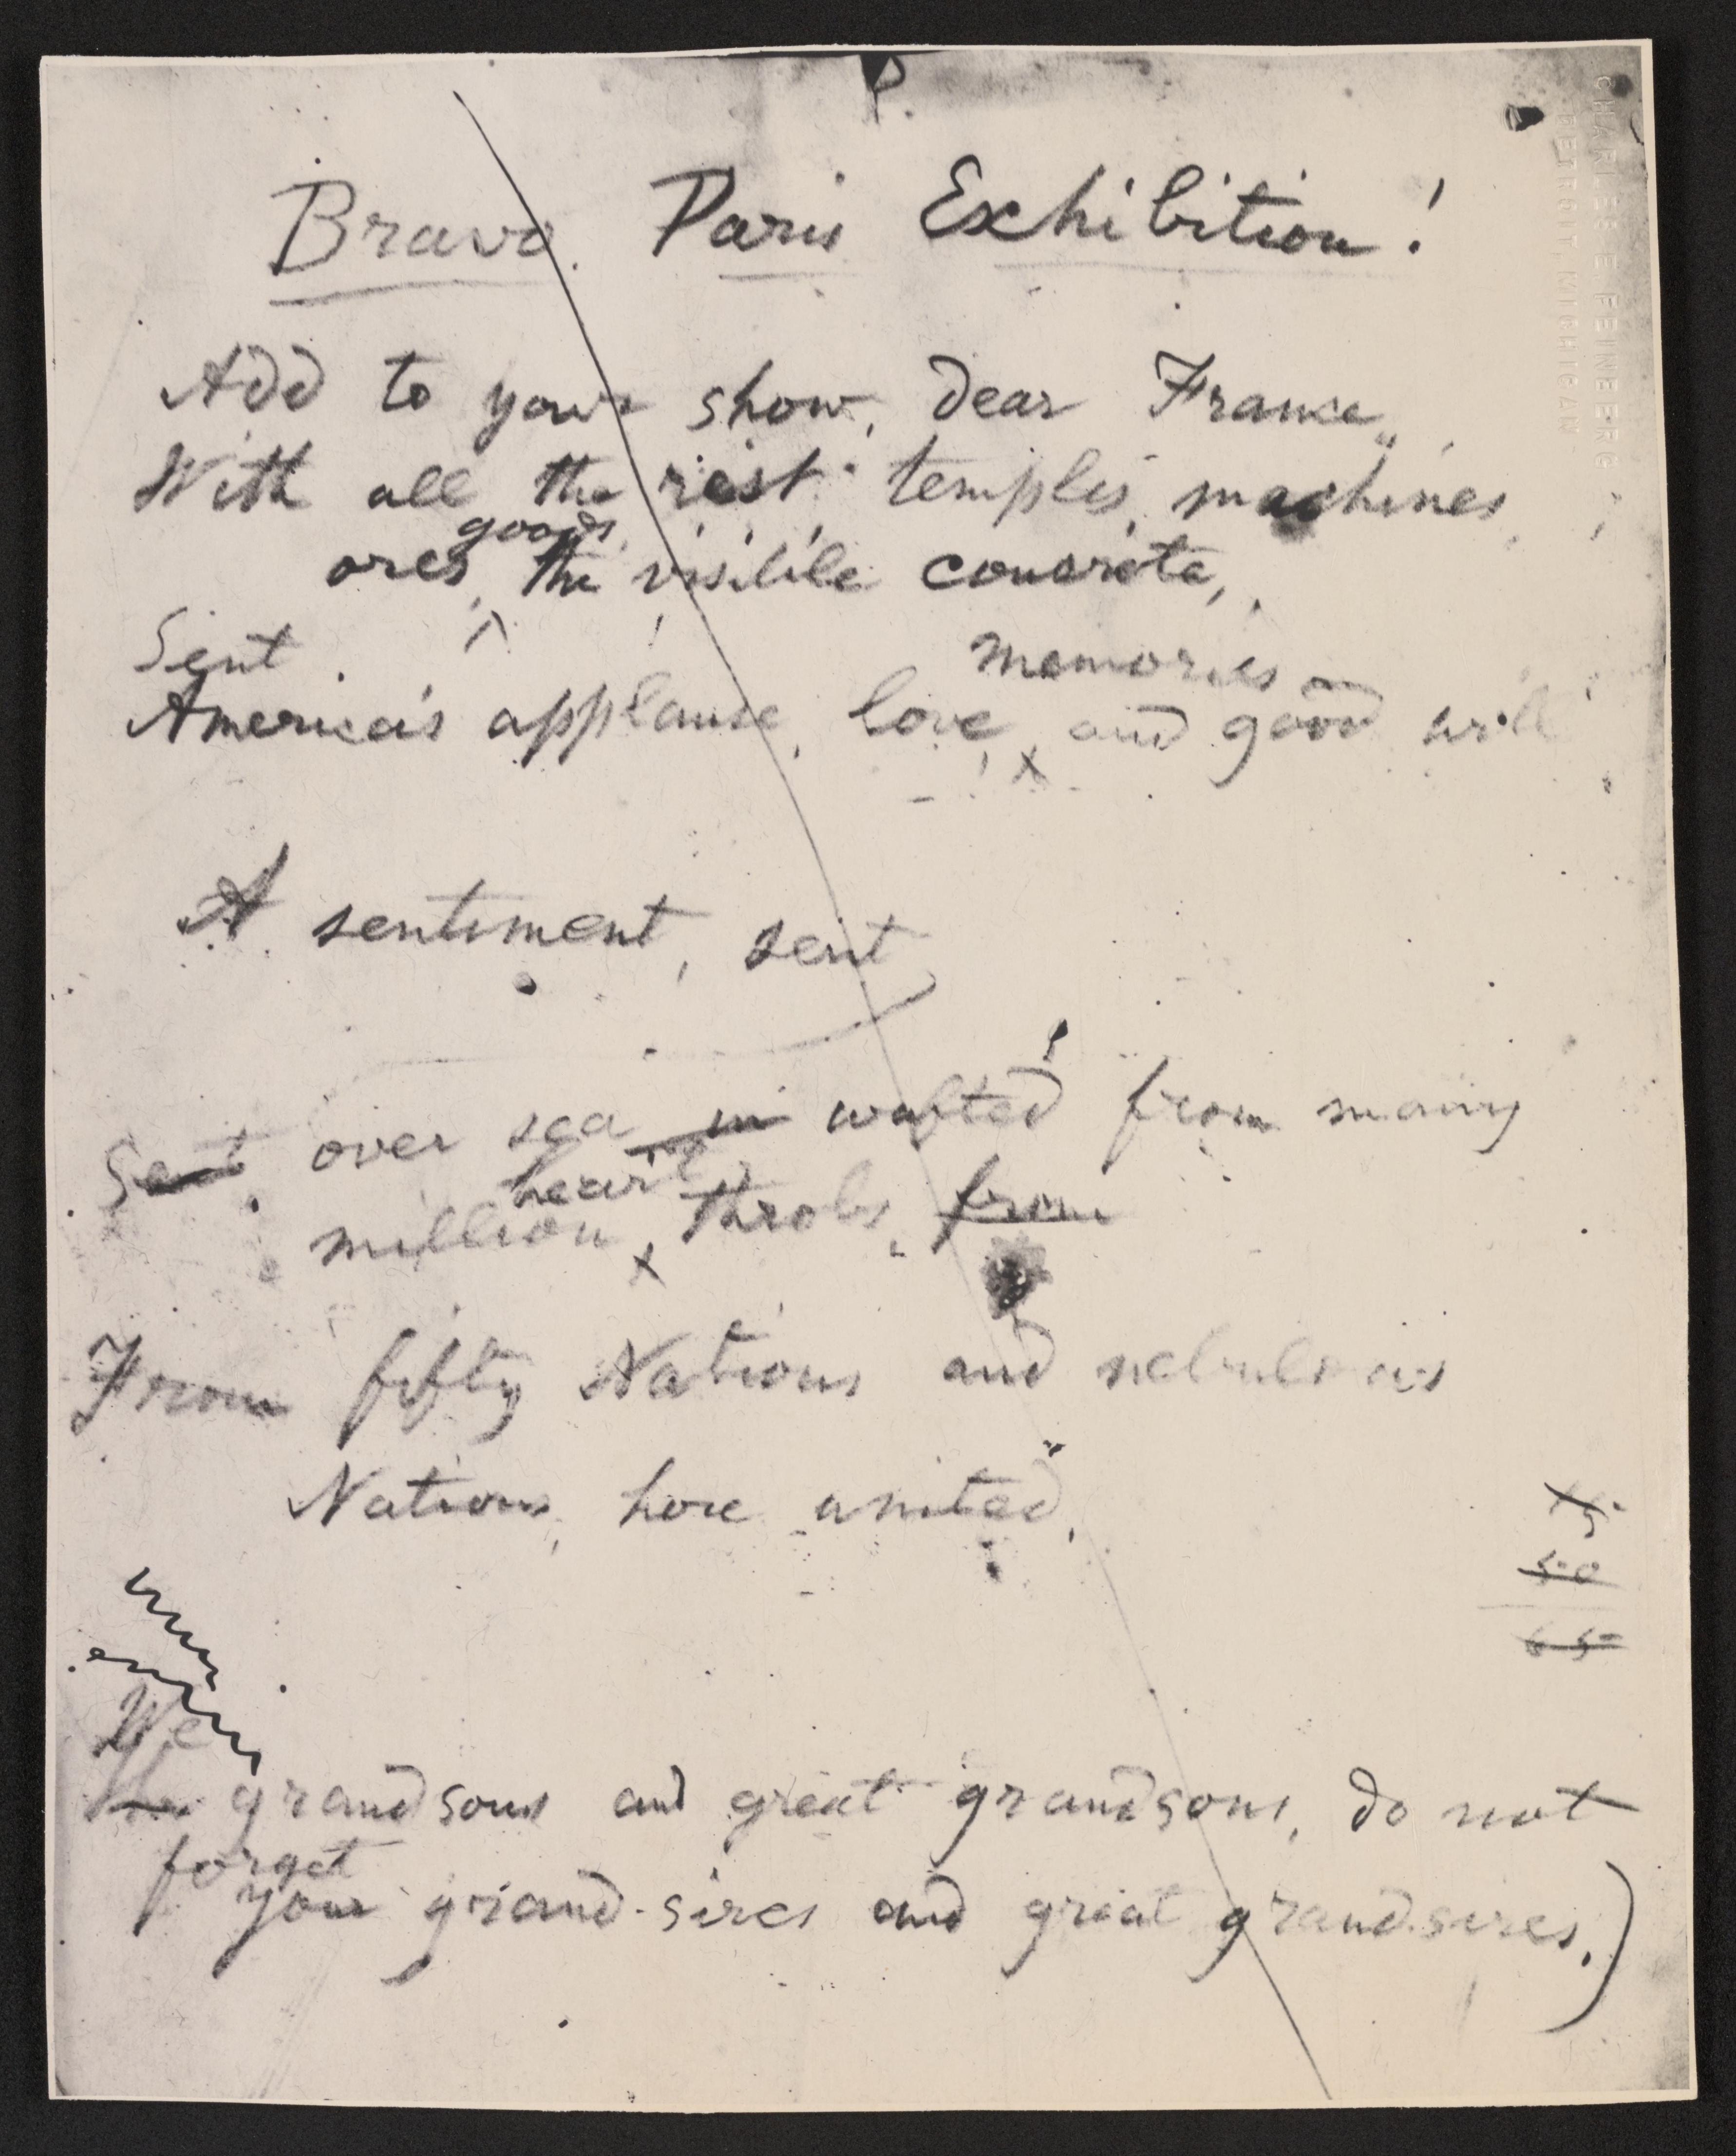 Bravo Paris Exhibition!
Add to your show, dear France,
With all the rest temples, machines,
goods,
ores, the visible concrete,
Sent
memories
America's applause, love, and good will
A sentiment, sent
Sent over sea in wafted from many
heart
million throbs, from
From fifty Nations and nebulous
Nations, here united,
50
65
We
The grandsons and great grandsons, do not
forget
your grand-sires and great grandsires.)
CHARLES E FEINBERG
DETROIT, MICHIGAN